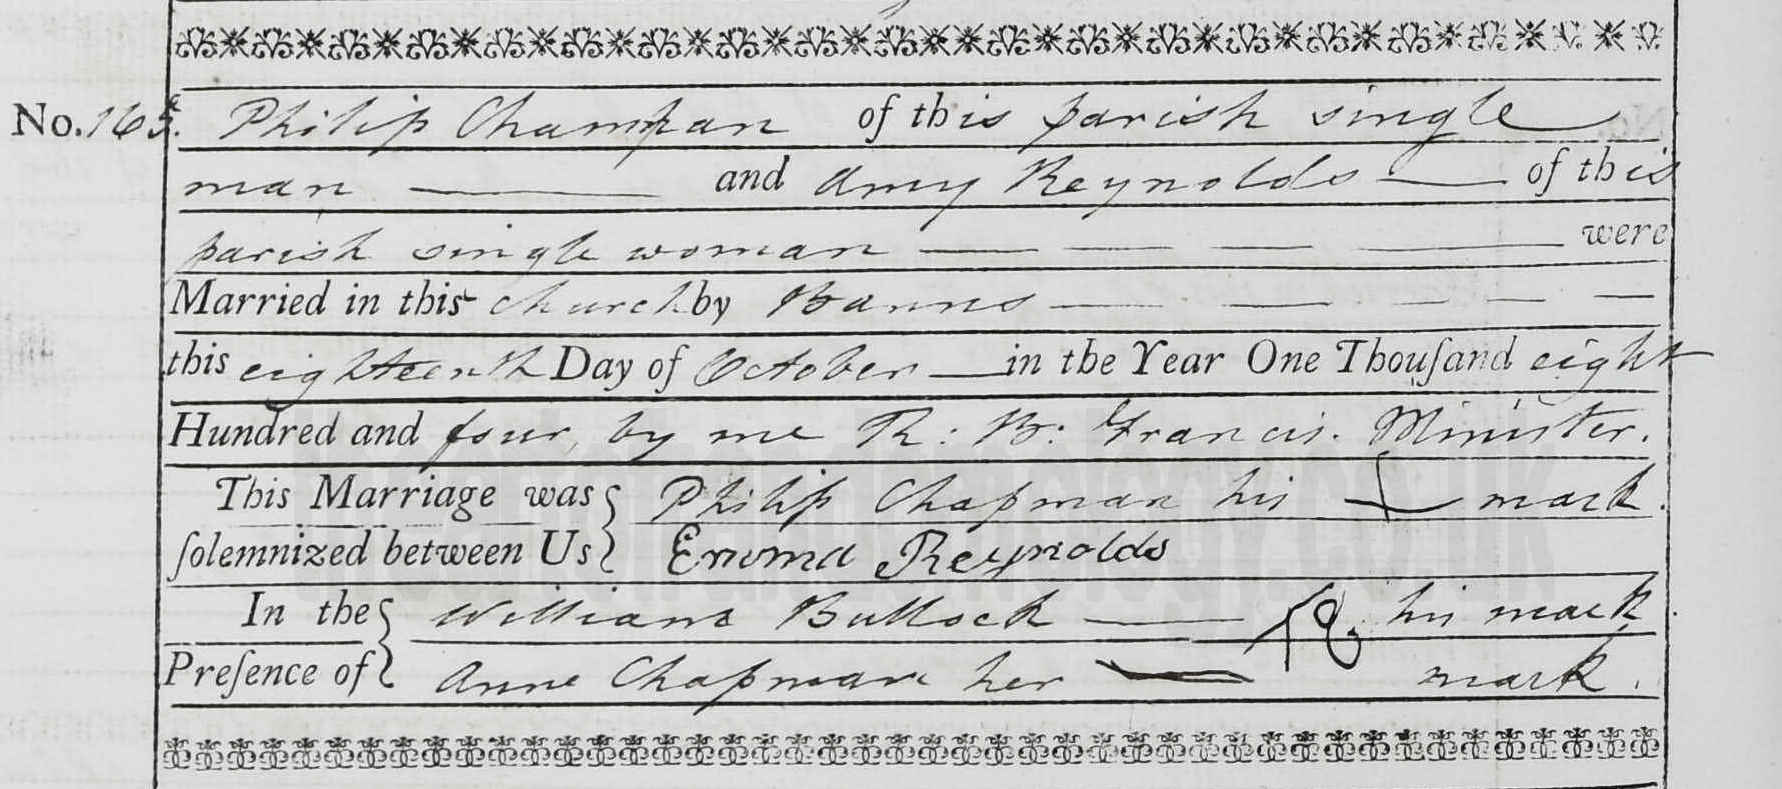 No. 165. Philip Champan of this parish single
man and Amy Reynolds of this
parish single woman were
Married in this church by Banns
this eighteenth Day of October in the Year One Thouſand eight
Hundred and four, by me R: B: Francis. Minister.
This Marriage was Philip Chapman his mark.
ſolemnized between Us Emma Reynolds
In the William Bullock his mark
Preſence of Anne Chapman her mark.